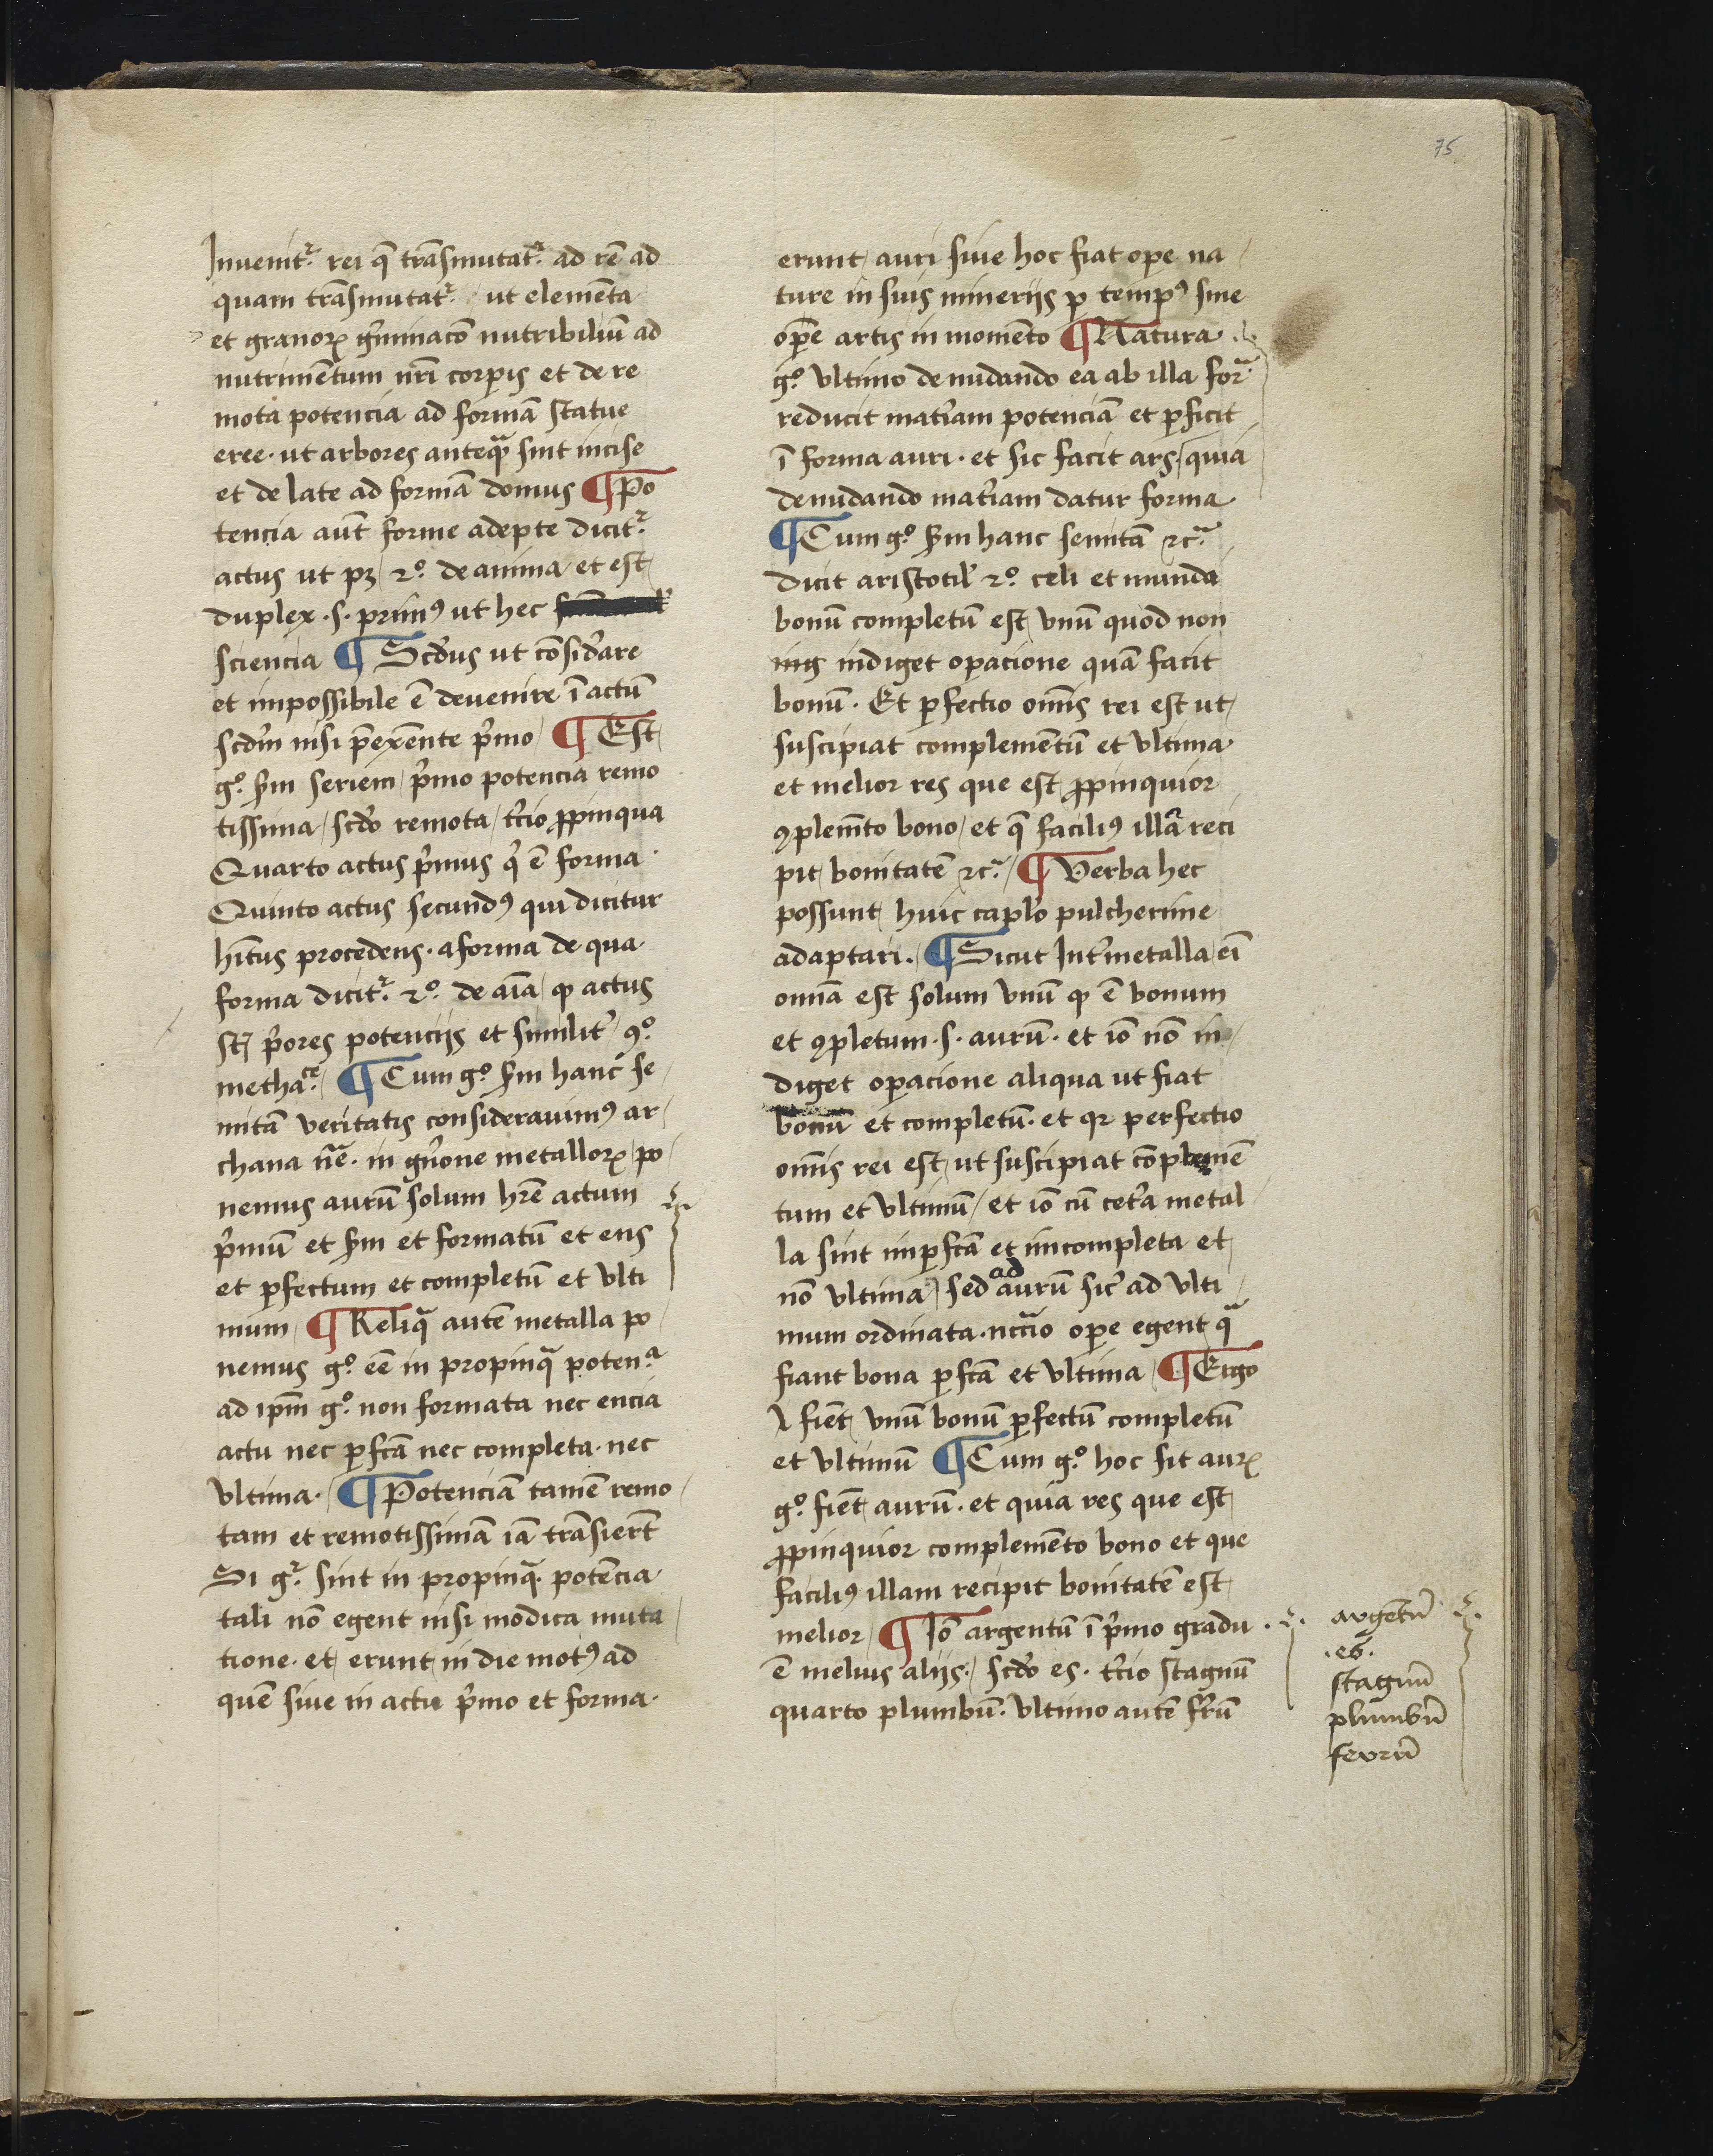 75
Inuenitr rei q̄ trāsmutatr ad rē ad
quam trāsmutatr ut elemēta
et granoꝝ g̓minacōn nutribiliū ad
nutrimētum nr̄i corpis et de re
mota potencia ad formā statue
eree · ut arbores anteqᵃ sint incise
et de late ad formā domus ¶ Po
tencia aut̄ forme adepte dicitr
actus ut pꝫ 2º de anima et est
duplex · s · primꝰ ut hec
sciencia ¶ Scd̓us ut cōsid̓are
et impossibile ē deuenire ī actū
scd̓m nisi p̄exēnte p̓mo ¶ Est
gº scd̓m seriem p̓mo potencia remo
tissima / scd̓o remota / tc̓io ꝓpinqua
Quarto actus p̓mus q̓ ē forma
Quinto actus secundꝰ qui dicitur
hītus procedens · a forma de qua
forma dicitr 2º de aīa ꝙ actus
st̄ p̓ores potencijs et similit̓ 9º
methaᶜᵉ ¶ Cum gº scd̓m hanc se
mitā veritatis considerauimꝰ ar
chana nᵉ · in gn̓one metalloꝝ po
nemus aurū solum hr̄e actum
p̓mū et scd̓m et formatū et ens
et ꝑfectum et completū et vlti
mum ¶ Reliqᵃ autē metalla po
nemus gº eē in propinqᵃ potenᵃ
ad ip̄m gº non formata nec encia
actu nec ꝑfcā nec completa · nec
vltima · ¶ Potenciā tamē remo
tam et remotissimā iā trāsier̄t
Si gr sint in propinqᵃ potēcia
tali nō egent nisi modica muta
tione · et erunt in die motꝰ ad
quē siue in actu p̓mo et forma ·
erunt auri siue hoc fiat ope na
ture in suis minerijs ꝑ tempꝰ siue
opē artis in momēto ¶ Natura
gº vltimo denudando ea ab illa forᵃ
reducit mat̓iam potenciā et ꝑficit
ī forma auri · et sic facit ars · quia
denudando mat̓iam datur forma
¶ Cum gº scd̓m hanc semitā 2cᵃ
dicit aristotil̓ 2º celi et mundi
bonū completū est vnū quod non
inꝯ indiget oꝑacione quā facit
bonū · Et ꝑfectio om̄is rei est ut
suscipiat complementū et vltima
et melior res que est ꝓpinquior
ꝯplem̄to bono / et q̄ faciliꝰ illā reci
pit bonitatē 2cᵃ ¶ Verba hec
possunt huic capl̓o pulcherime
adaptari · ¶ Sicut Int̓ metalla ei
omīa est solum vnū ꝙ ē bonum
et ꝯpletum · s · aurū · et iō nō in
diget oꝑacione aliqua ut fiat
bonū et completū · et qꝛ perfectio
om̄is rei est ut suscipiat complemē
tum et vltimū / et iō cū cet̓a metal
la sint imꝑfcā et incompleta et
nō vltima / sed ad aurū sic̓ ad vlti
mum ordinata · nccᵃio oꝑe egent qᵃ
fiant bona ꝑfcā et vltima ¶ Ergo
fiēt vnū bonū ꝑfectū completū
et vltimū ¶ Cum gº hoc sit auꝝ
gº fiēt aurū · et quia res que est
ꝓpinquior complemēto bono et que
faciliꝰ illam recipit bonitatē est
melior ¶ Iō argentū ī p̓mo gradu ·
ē melius alijs · scd̓o es · tc̓io stagnū
quarto plumbū · vltimo autē fr̓ū
argētū
· es ·
stagnū
plumbū
ferrū